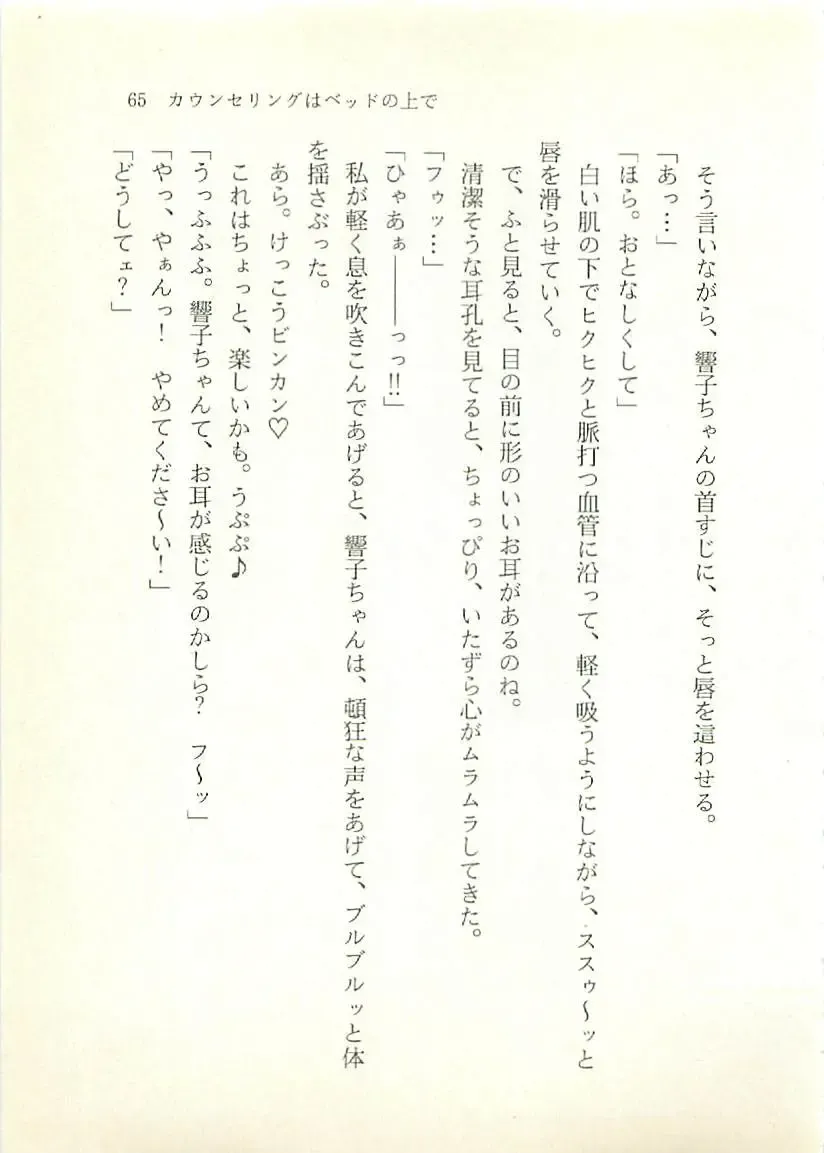 65　カウンセリングはベッドの上で
そう言いながら、響子ちゃんの首すじに、そっと唇を這わせる。
「あっ…」
「ほら。おとなしくして」
白い肌の下でヒクヒクと脈打つ血管に沿って、軽く吸うようにしながら、ススゥ〜ッと
唇を滑らせていく。
で、ふと見ると、目の前に形のいいお耳があるのね。
清潔そうな耳孔を見てると、ちょっぴり、いたずら心がムラムラしてきた。
「フゥッ…」
「ひゃあぁ――っっ!!」
私が軽く息を吹きこんであげると、響子ちゃんは、頓狂な声をあげて、ブルブルッと体
を揺さぶった。
あら。けっこうビンカン♡
これはちょっと、楽しいかも。うぷぷ♪
「うっふふふ。響子ちゃんて、お耳が感じるのかしら？　フ〜ッ」
「やっ、やぁんっ！　やめてくださ〜い！」
「どうしてェ？」